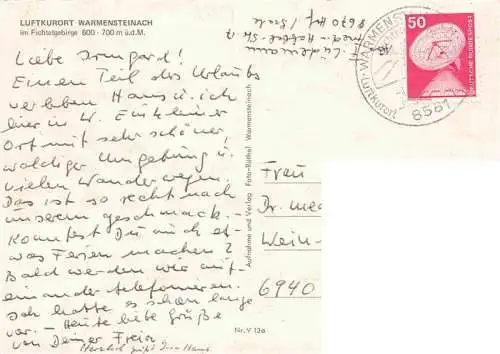 LUFTKURORT WARMENSTEINACH
im Fichtelgebirge 600 - 700 m ü.d.M.
Liebe Irmgard!
Einen Teil des Urlaubs
verleben Hans u. ich
hier in W. Ein kleiner
Ort mit sehr schöner,
waldiger Umgebung u.
vielen Wanderwegen.
Das ist so recht nach
unserem Geschmack. -
Konntest Du auch et-
was Ferien machen?
Bald werden wir mit-
einander telefonieren.
Ich hatte es schon lange
vor. - Heute liebe Grüße
von Deiner
Herzlich grüßt Dein Hans
Nr. V 13a
Aufnahme und Verlag Foto-Räthel Warmensteinach
8670 Hof / Saale
50
DEUTSCHE BUNDESPOST
WARMENS
Luftkurort
8581
Frau
Dr. med
Wein-
6940